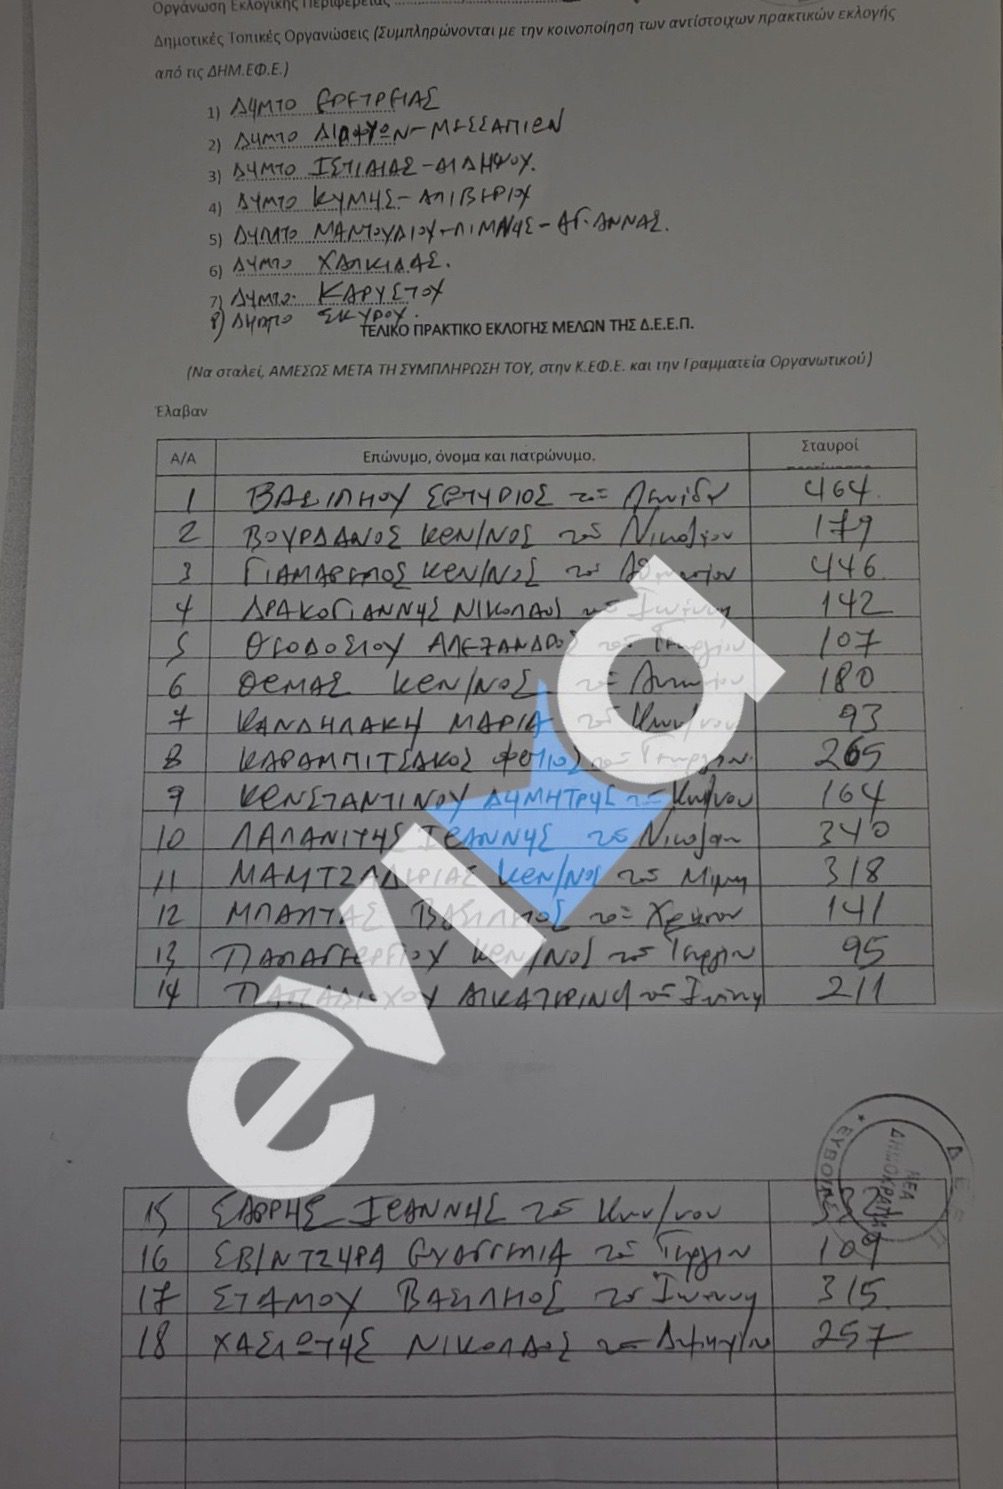 Οργάνωση Εκλογικής Περιφέρειας
Δημοτικές Τοπικές Οργανώσεις (Συμπληρώνονται με την κοινοποίηση των αντίστοιχων πρακτικών εκλογής
από τις ΔΗΜ.ΕΦ.Ε.)
1) ΔΗΜΤΟ ΕΡΕΤΡΕΙΑΣ
2) ΔΗΜΤΟ ΔΙΡΦΥΩΝ-ΜΕΣΣΑΠΙΩΝ
3) ΔΗΜΤΟ ΙΣΤΙΑΙΑΣ-ΑΙΔΗΨΟΥ.
4) ΔΗΜΤΟ ΚΥΜΗΣ-ΑΛΙΒΕΡΙΟΥ
5) ΔΗΜΤΟ ΜΑΝΤΟΥΔΙΟΥ-ΛΙΜΝΗΣ-ΑΓ.ΑΝΝΑΣ.
6) ΔΗΜΤΟ ΧΑΛΚΙΔΑΣ.
7) ΔΗΜΤΟ ΚΑΡΥΣΤΟΥ
8) ΔΗΜΤΟ ΣΚΥΡΟΥ.
ΤΕΛΙΚΟ ΠΡΑΚΤΙΚΟ ΕΚΛΟΓΗΣ ΜΕΛΩΝ ΤΗΣ Δ.Ε.Ε.Π.
(Να σταλεί, ΑΜΕΣΩΣ ΜΕΤΑ ΤΗ ΣΥΜΠΛΗΡΩΣΗ ΤΟΥ, στην Κ.ΕΦ.Ε. και την Γραμματεία Οργανωτικού)
Έλαβαν
Α/Α Επώνυμο, όνομα και πατρώνυμο. Σταυροί
1 ΒΑΣΙΛΕΙΟΥ ΣΩΤΗΡΙΟΣ του Λεωνίδα 464
2 ΒΟΥΡΔΑΝΟΣ ΚΩΝ/ΝΟΣ του Νικολάου 179
3 ΚΩΝ/ΝΟΣ του Αθανασίου 446
4 ΔΡΑΚΟΓΙΑΝΝΗΣ ΝΙΚΟΛΑΟΣ του Ιωάννη 142
5 ΘΕΟΔΟΣΙΟΥ ΑΛΕΞΑΝΔΡΟΣ του Γεωργίου 107
6 ΘΩΜΑΣ ΚΩΝ/ΝΟΣ του Αντωνίου 180
7 ΚΑΝΔΗΛΑΚΗ ΜΑΡΙΑ του Κων/νου 93
8 ΚΑΡΑΜΠΙΤΣΑΚΟΣ ΦΩΤΙΟΣ του Γεωργίου 265
9 ΚΩΝΣΤΑΝΤΙΝΟΥ ΔΗΜΗΤΡΗΣ του Κων/νου 164
10 ΙΩΑΝΝΗΣ του Νικολάου 340
11 ΚΩΝ/ΝΟΣ του 318
12 ΜΠΑΛΤΑΣ ΒΑΣΙΛΕΙΟΣ του Χρήστου 141
13 ΠΑΠΑΓΕΩΡΓΙΟΥ ΚΩΝ/ΝΟΣ του Γεωργίου 95
14 ΑΙΚΑΤΕΡΙΝΗ του Ιωάννη 211
evia
15 ΙΩΑΝΝΗΣ του Κων/νου
16 ΣΒΙΝΤΖΗΡΑ ΕΥΑΓΓΕΛΙΑ του Γεωργίου 109
17 ΣΤΑΜΟΥ ΒΑΣΙΛΕΙΟΣ του Ιωάννη 315
18 ΧΑΣΙΩΤΗΣ ΝΙΚΟΛΑΟΣ του Δημητρίου 257
ΝΕΑ
ΔΗΜΟΚΡΑΤΙΑ
ΕΥΒΟΙΑΣ